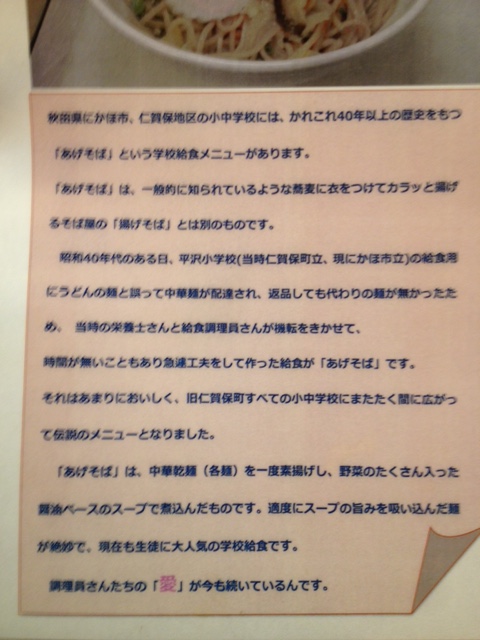 秋田県にかほ市、仁賀保地区の小中学校には、かれこれ40年以上の歴史をもつ
「あげそば」という学校給食メニューがあります。
「あげそば」は、一般的に知られているような蕎麦に衣をつけてカラッと揚げ
るそば屋の「揚げそば」とは別のものです。
昭和40年代のある日、平沢小学校(当時仁賀保町立、現にかほ市立)の給食用
にうどんの麺と誤って中華麺が配達され、返品しても代わりの麺が無かったた
め、 当時の栄養士さんと給食調理員さんが機転をきかせて、
時間が無いこともあり急遽工夫をして作った給食が「あげそば」です。
それはあまりにおいしく、旧仁賀保町すべての小中学校にまたたく間に広がっ
て伝説のメニューとなりました。
「あげそば」は、中華乾麺（各麺）を一度素揚げし、野菜のたくさん入った
醤油ベースのスープで煮込んだものです。適度にスープの旨みを吸い込んだ麺
が絶妙で、現在も生徒に大人気の学校給食です。
調理員さんたちの「愛」が今も続いているんです。